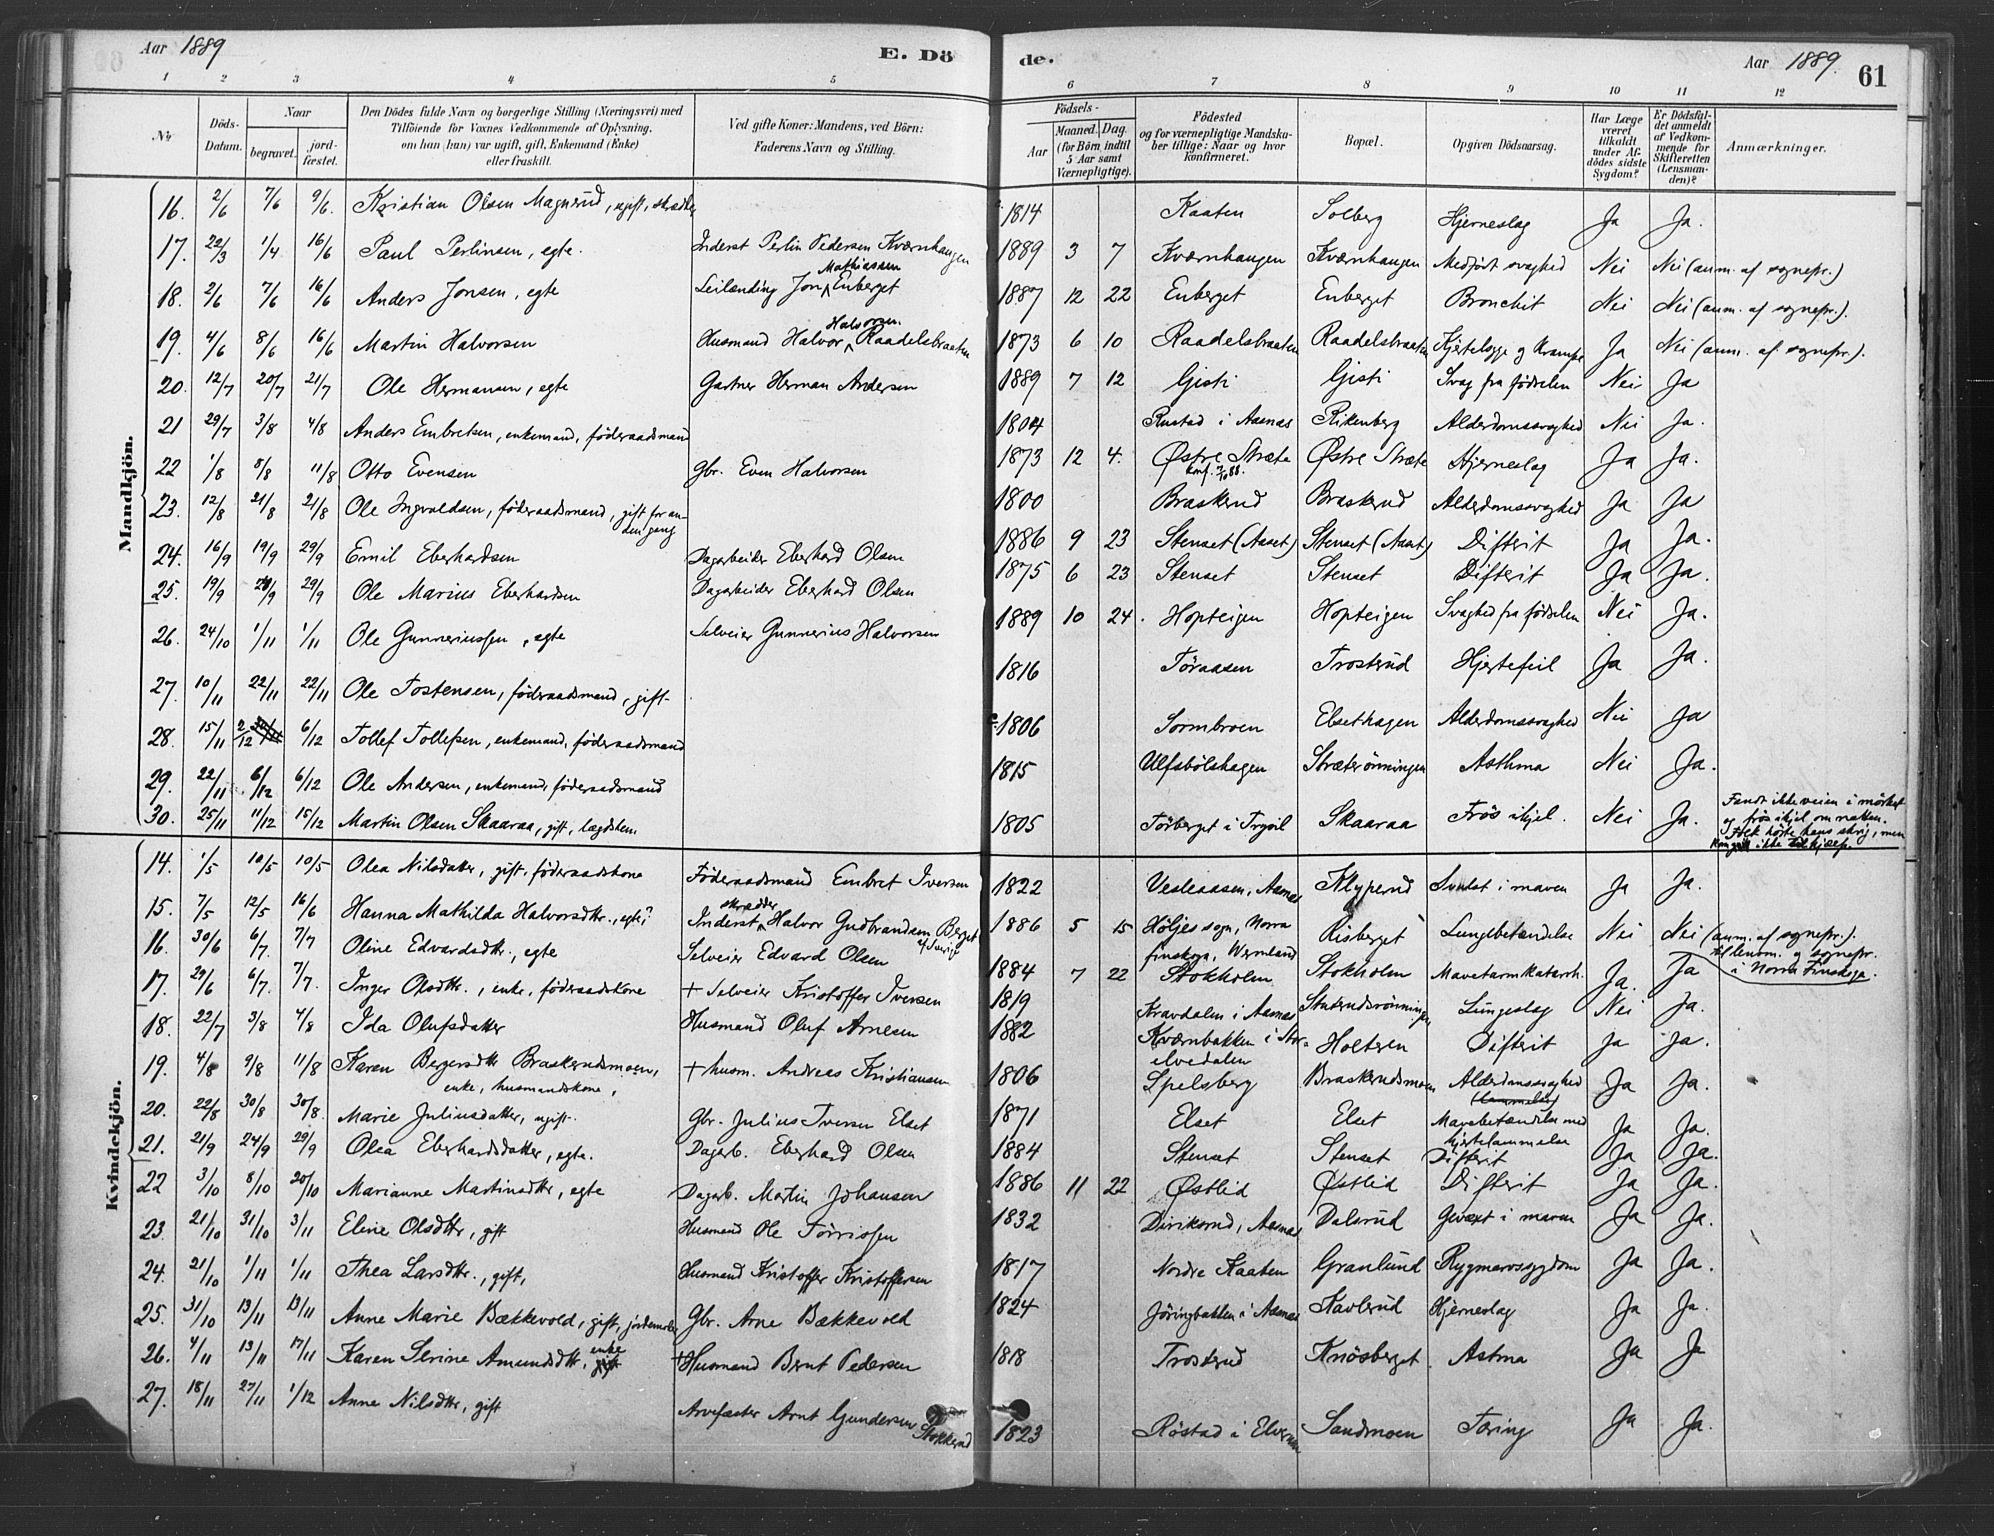 Aar 1889 E. Dö de. Aar 1889. 61
1 2 3 4 5 6 7 8 9 10 11 12
No Döds-Datum. Naar begravet. jord-fæstet. Den Dödes fulde Navn og borgerlige Stilling (Næringsvei) med Tilföiende for Voxnes Vedkommende af Oplysning, om han (hun) var ugift, gift, Enkemand (Enke) eller fraskilt. Ved gifte Koner: Mandens, ved Börn: Faderens Navn og Stilling. Födsels- Aar Maaned. Dag. (for Börn indtil 5 Aar samt Værnepligtige). Födested og for værnepligtige Mandskaber tillige: Naar og hvor konfirmeret. Bopæl. Opgiven Dödsaarsag. Har Læge været tilkaldt under Afdödes sidste Sygdom? Er Dödsfaldet anmeldt af Vedkommende for Skifteretten (Lensmanden)? Anmærkninger.
Mandkjön.
16. 2/6 7/6 9/6. Kristian Olsen Magnerud, ugift, skrædder 1814 Kaaten Solberg Hjerneslag Ja Ja.
17. 22/3 1/4 16/6 Paul Perlinsen, egte. Inderst Perlin Pedersen Kværnhaugen 1889 3 7 Kværnhaugen Kværnhaugen Medfödt svaghed Nei Nei (anm. af sognepr.)
18. 2/6 7/6 16/6 Anders Jonsen, egte Leilænding Jon Mathiassen Enberget 1887 12 22 Enberget Enberget Bronchit Nei Nei (anm. af sognepr.).
19. 4/6 8/6 16/6 Martin Halvorsen Husmand Halvor Halvorsen Raadelsbraaten 1873 6 10 Raadelsbraaten Raadelsbraaten Kjertelsyge og Krampe Ja Nei (anm. af sognepr.).
20. 12/7 20/7 21/7 Ole Hermansen, egte Gartner Herman Andersen 1889 7 12 Gisti Gisti Svag fra födselen Nei Ja
21 29/7 3/8 4/8 Anders Embretsen, enkemand, föderaadsmand 1804 Rustad i Aasnas Rikenberg Alderdomssvaghed Nei Ja.
22 1/8 8/8 11/8 Otto Evensen Gbr. Even Halvorsen 1873 12 4. Østre Stræte Konf. 7/10 88. Østre Stræte Hjerneslag Ja Ja.
23. 12/8 21/8 21/8 Ole Ingvaldsen, föderaadsmand, gift for anden gang 1800 Braskerud Braskerud Alderdomssvaghed Ja Ja
24. 16/9 19/9 29/9 Emil Eberhardsen Dagarbeider Eberhard Olsen 1886 9 23 Stenset (Aaset) Stenset (Aaset) Difterit Ja Ja.
25. 19/9 24/9 29/9 Ole Marius Eberhardsen Dagarbeider Eberhard Olsen 1875 6 23 Stenset Stenset Difterit Ja Ja.
26. 24/10 1/11 1/11 Ole Gunneriussen, egte Selveier Gunnerius Halvorsen 1889 10 24. Hopteigen Hopteigen Svaghed fra födselen Nei Ja.
27. 10/11 22/11 22/11 Ole Tostensen, föderaadsmand, gift 1816 Töraasen Trosterud Hjertefeil Ja Ja.
28. 15/11 2/12 6/12 Tollef Tollefsen, enkemand, föderaadsmand 1806 Sormbroen Elsethagen Alderdomssvaghed Nei Ja
29. 22/11 6/12 6/12 Ole Andersen, enkemand, föderaadsmand 1815 Ulfsbölshagen Stræterönningen Asthma Nei Ja.
30. 25/11 11/12 15/12 Martin Olsen Skaaraa, gift, lægdslem 1805 Törberget i Trysil Skaaraa Frös ihjel. Nei Ja. Fandt ikke veien i mörket og frös ihjel om natten. Folk hörte hans skrig, men kom ikke til hjælp.
Kvindekjön.
14. 1/5 10/5 10/5 Olea Nilsdatter, gift, föderaadskone Föderaadsmand Embret Iversen 1822 Vesleaasen, Aasnas Klyperud Svulst i maven Ja Ja.
15. 7/5 12/5 16/6 Hanna Mathilda Halvorsdtr., egte? Inderst skrædder Halvor Gudbrandsen Berget af Sverige 1886 5 15 Höljes sogn, Norra finskoga, Wermland Risberget Lungebetændelse Nei Nei (anm. af sognepr.). til lensm. og sognepr. i Norra Finskoga.
16. 30/6 6/7 7/7 Oline Edvardsdtr., egte Selveier Edvard Olsen 1884 7 22 Stokholm Stokholm Mavetarmkatarrh. Ja. Ja
17. 29/6 6/7. 7/7. Inger Olsdtr., enke, föderaadskone + Selveier Kristoffer Iversen 1819 Kravdalen i Aasnas Stuterudsrönningen Lungeslag Nei Ja.
18. 22/7 3/8 4/8 Ida Olufsdatter Husmand Oluf Arnesen 1882 Kværnbakken i Storelvedalen Holteren Difterit Ja Ja.
19. 4/8 9/8 11/8 Karen Bergersdtr Braskerudsmoen, enke, husmandskone, + husm. Andreas Kristiansen 1806 Spelsberg Braskerudsmoen Alderdomssvaghed (lammelse) Ja Ja.
20. 22/8 30/8 30/8. Marie Juliusdatter, ugift. Gbr. Julius Iversen Elset 1871 Elset Elset Mavebetændelse med hjertelammelse Ja Ja.
21. 21/9 24/9 29/9 Olea Eberhardsdatter, egte. Dagarb. Eberhard Olsen 1884 Stenset Stenset Difterit Ja Ja.
22 3/10 8/10 20/10 Marianne Martinsdtr, egte Dagarb. Martin Johansen 1886 11 22 Østlid Østlid Difterit Ja Ja.
23. 21/10 31/10 3/11 Eline Olsdtr, gift Husmand Ole Törrissen 1832 Diriksrud, Aasnas Dalsrud Gevæxt i maven Ja Ja.
24. 21/10 1/11 1/11 Thea Larsdtr., gift, Husmand Kristoffer Kristoffersen 1817 Nordre Kaaten Granlund Rygmarvssygdom Ja Ja.
25. 31/10 13/11 13/11 Anne Marie Bækkevold, gift, jordemoder Gbr. Arne Bækkevold 1824 Jöringbakken i Aasnas Kavlerud Hjerneslag Ja Ja.
26. 4/11 13/11 17/11 Karen Serine Amundsdtr, enke + Husmand Bernt Pedersen 1818 Trosterud Knösberget. Astma Ja Ja
27. 18/11 27/11 1/12 Anne Nilsdtr, gift Arvefæster Arnt Gundersen Stokkerud 1823 Röstad i Elverum Sandmoen Tæring Ja Ja.